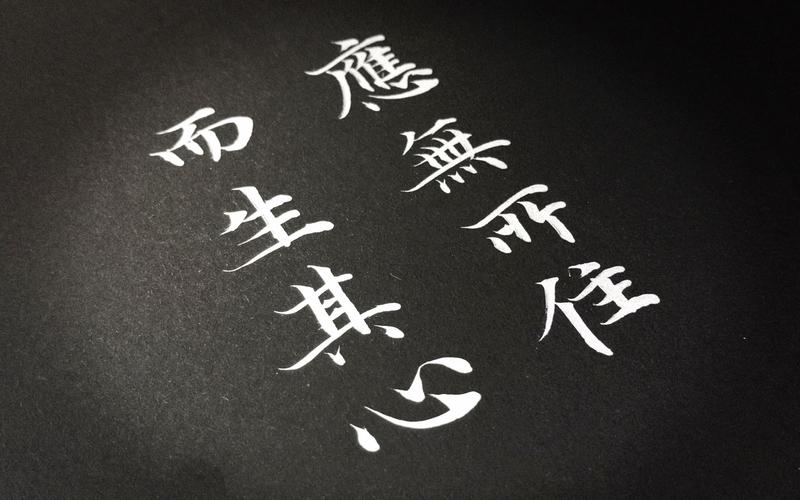 應無所住
而生其心